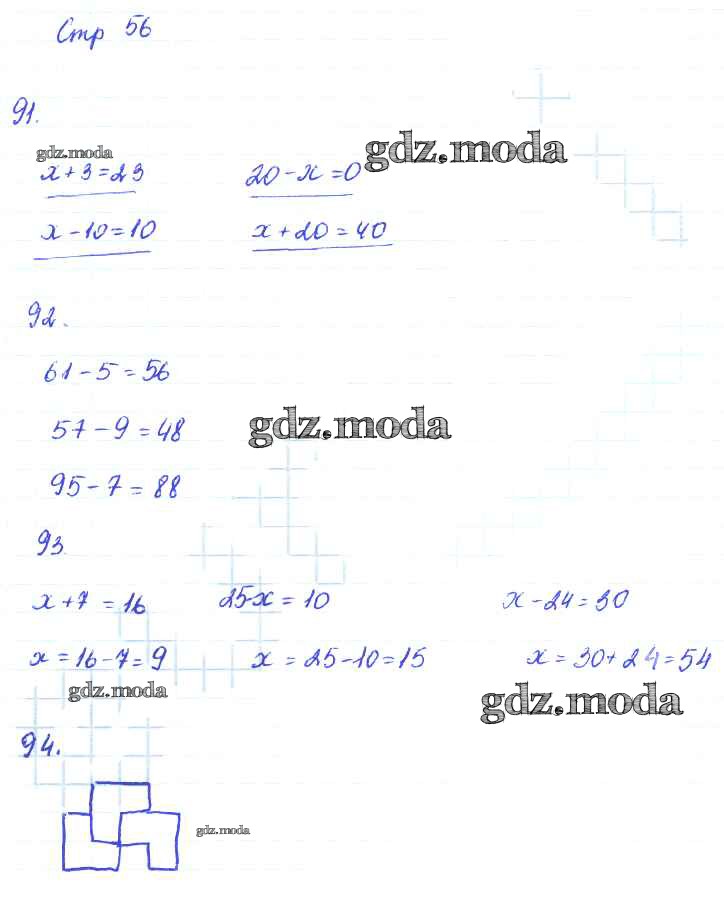 Стр 56
91.
gdz.moda
gdz.moda
x+3=23 20-x=0
x-10=10 x+20=40
92.
61-5=56
57-9=48
gdz.moda
95-7=88
93
x+7=16 25-x=10 x-24=30
x=16-7=9 x=25-10=15 x=30+24=54
gdz.moda
gdz.moda
94.
gdz.moda